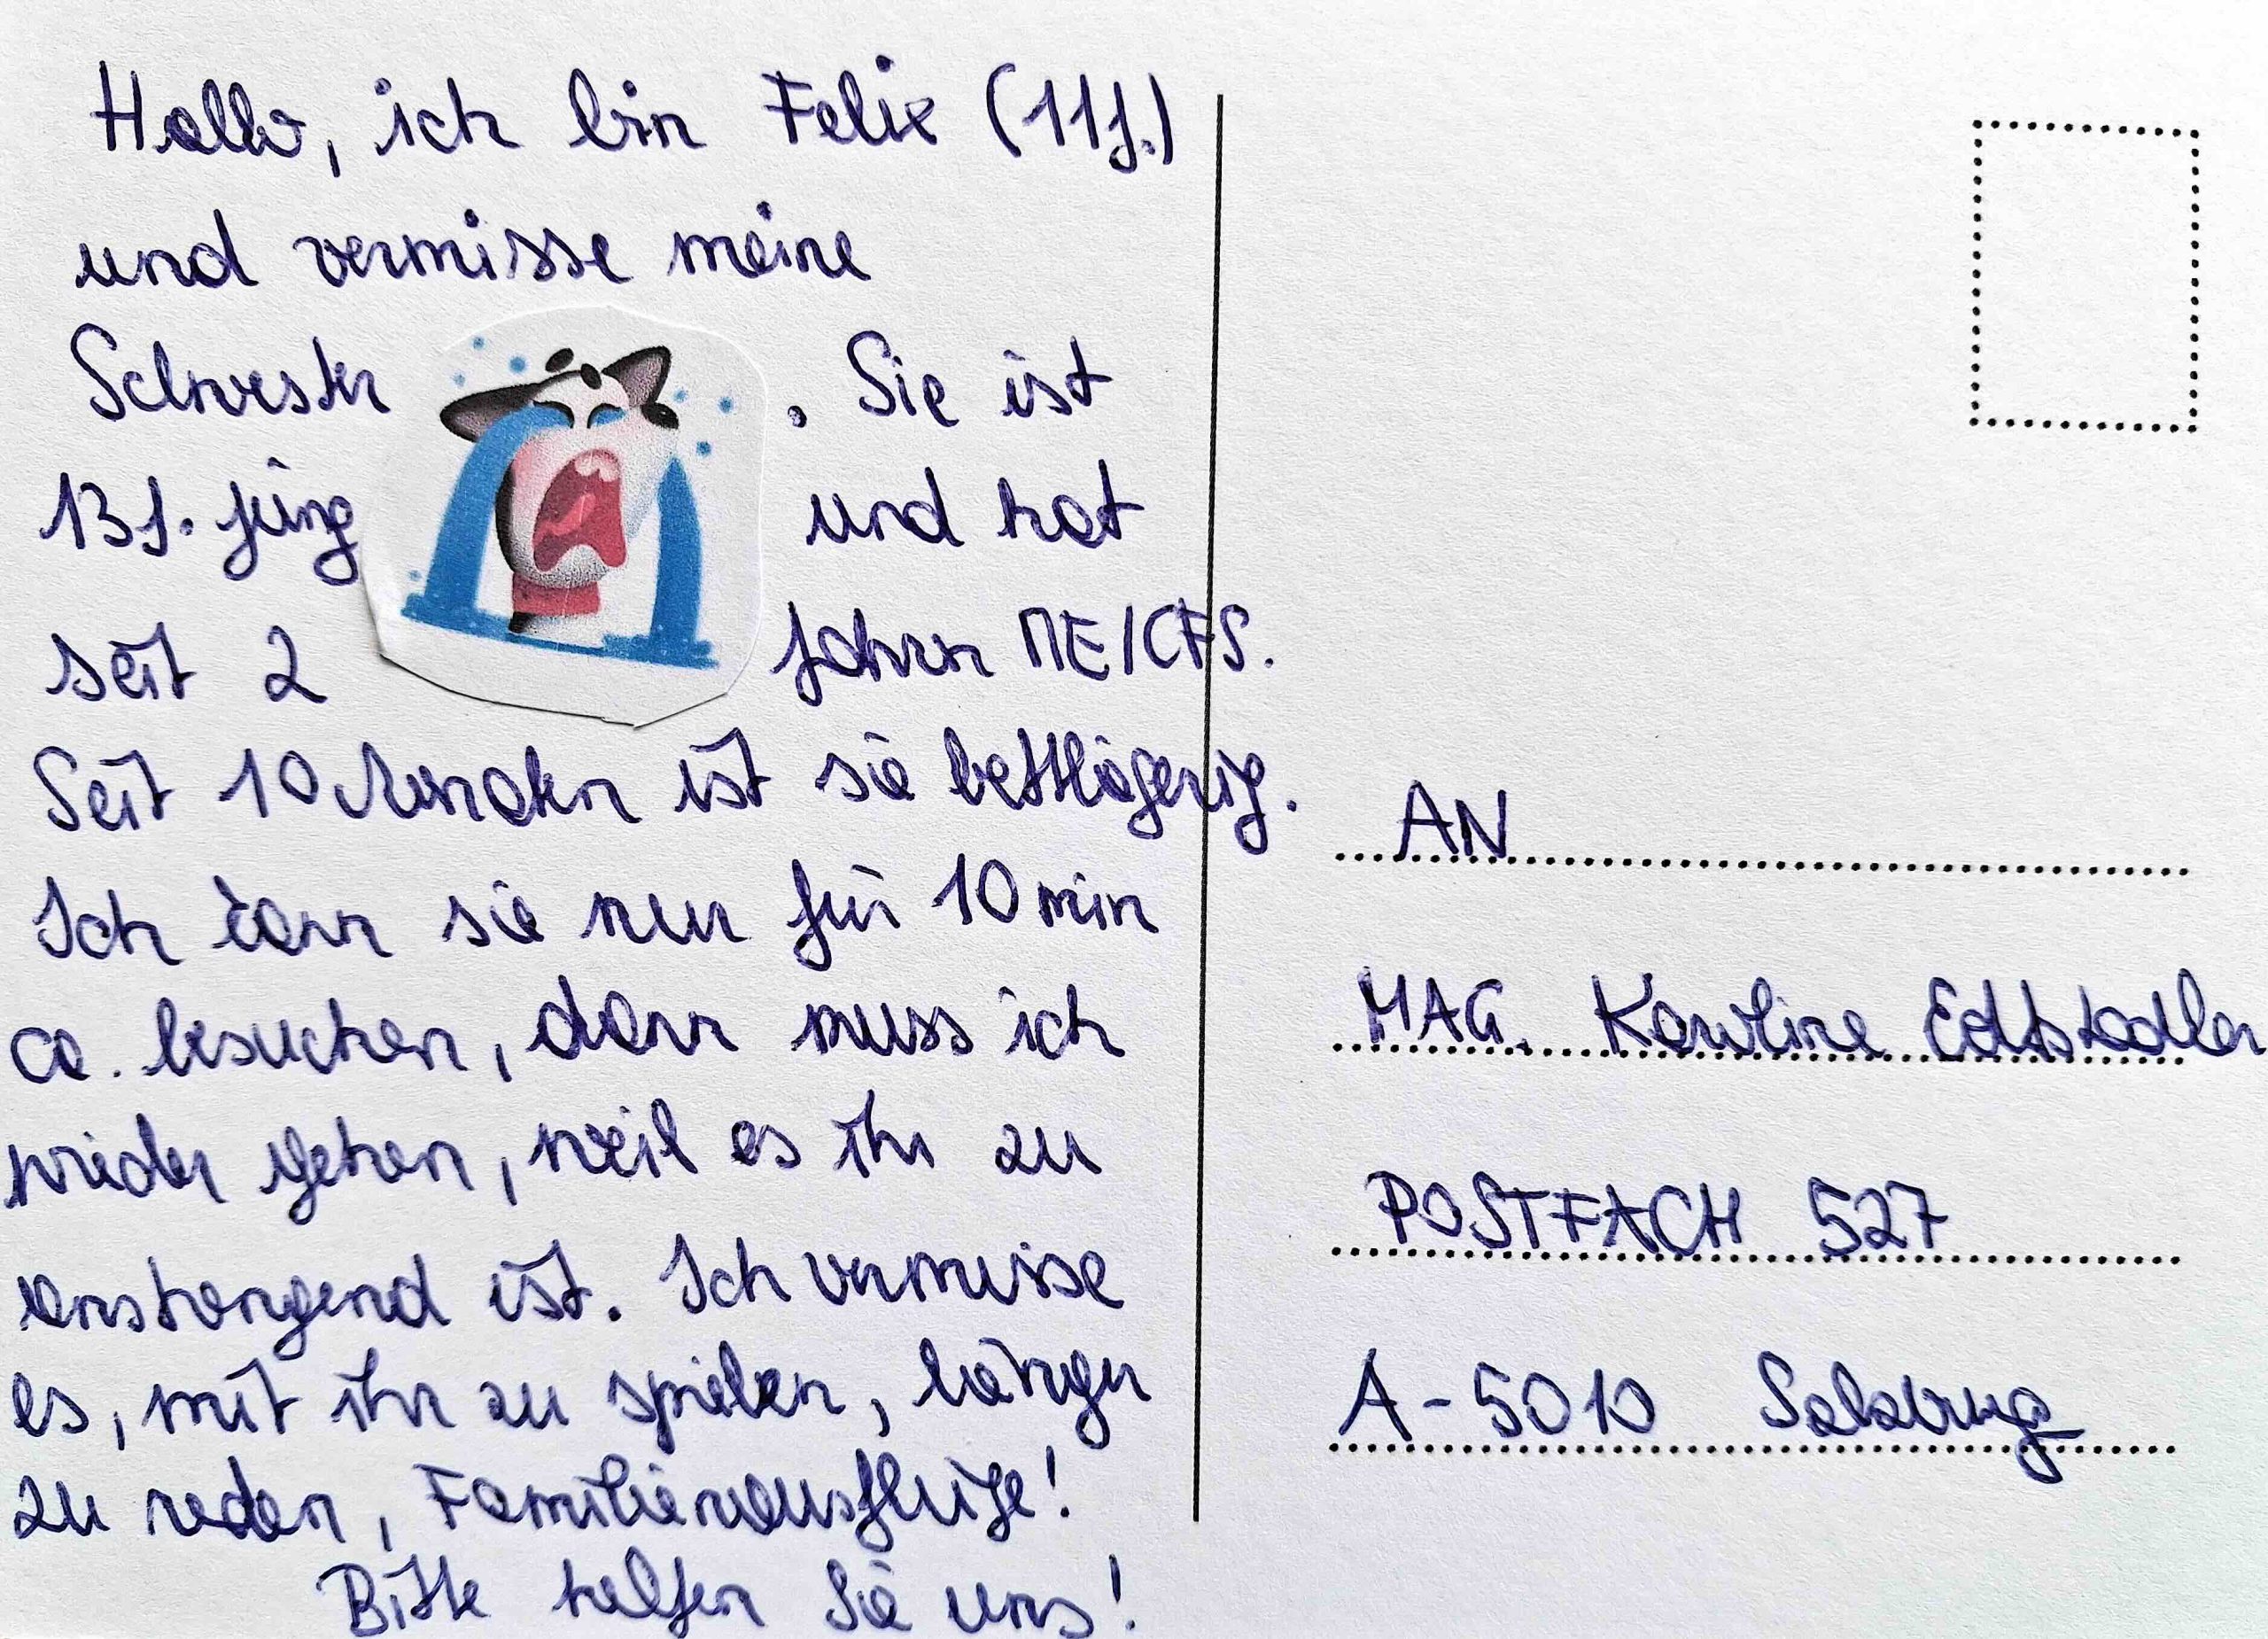 Hallo, ich bin Felix (11J.)
und vermisse meine
Schwester . Sie ist
13J. jung und hat
seit 2 Jahren ME/CFS.
Seit 10 Monaten ist sie bettlägerig.
Ich kann sie nur für 10 min
ca. besuchen, dann muss ich
wieder gehen, weil es ihr zu
anstrengend ist. Ich vermisse
es, mit ihr zu spielen, länger
zu reden, Familienausflüge!
Bitte helfen Sie uns!
AN
MAG. Karoline Edtstadler
POSTFACH 527
A-5010 Salzburg